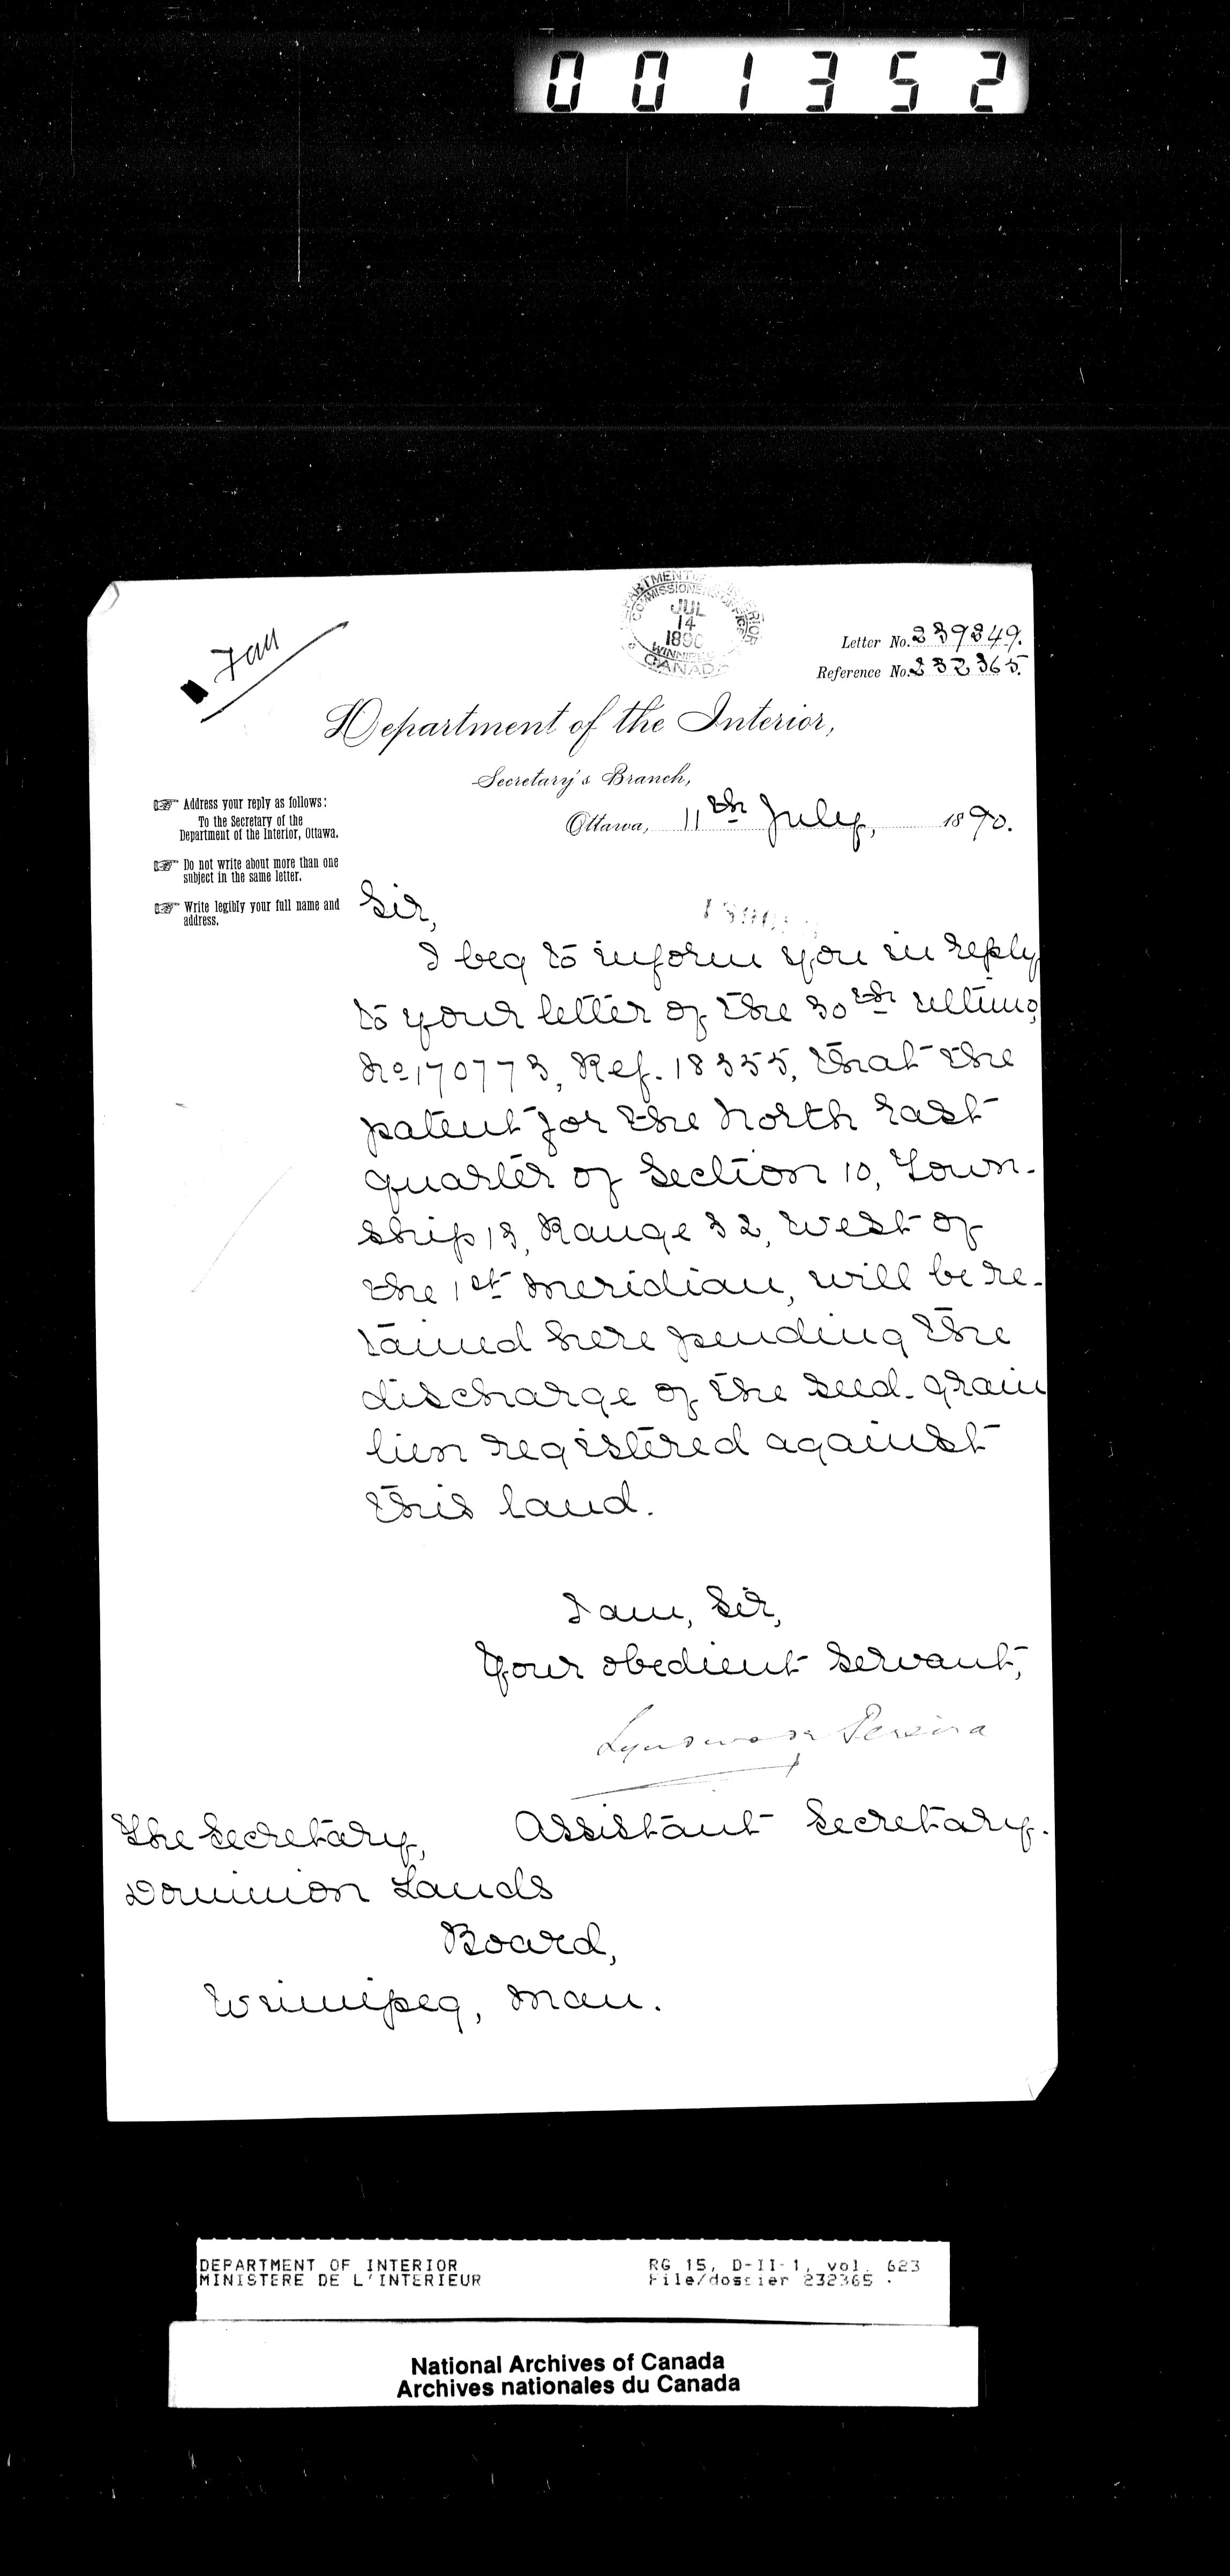 001352
DEPARTMENT OF INTERIOR
COMMISSIONER'S OFFICE
JUL
14
1890
WINNIPEG
CANADA
Letter No. 239849.
Reference No. 232365.
Department of the Interior,
Secretary's Branch,
Ottawa, 11th July, 1890.
Address your reply as follows:
To the Secretary of the
Department of the Interior, Ottawa.
Do not write about more than one
subject in the same letter.
Write legibly your full name and
address.
Sir,
I beg to inform you in reply
to your letter of the 30th ultimo,
No 170773, Ref. 18355, that the
patent for the North East
quarter of Section 10, Town-
ship 13, Range 32, West of
the 1st Meridian, will be re-
tained here pending the
discharge of the seed-grain
lien registered against
this land.
I am, Sir,
Your obedient servant,
Lyndwode Pereira
Assistant Secretary.
The Secretary,
Dominion Lands
Board,
Winnipeg, Man.
DEPARTMENT OF INTERIOR
MINISTERE DE L'INTERIEUR
RG 15, D-II-1, vol. 623
File/dossier 232365
National Archives of Canada
Archives nationales du Canada